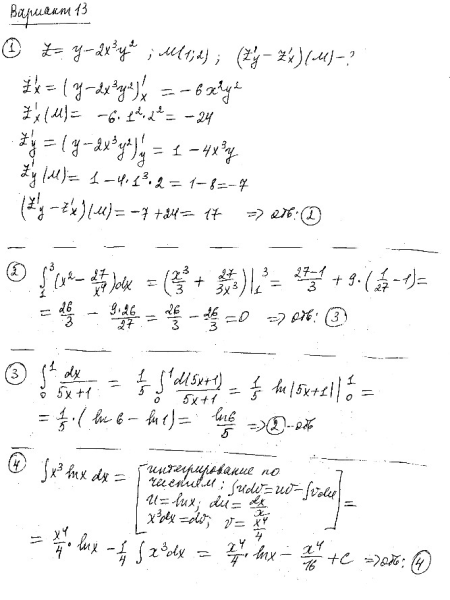 Вариант 13
① Z = y − 2x³y² ; M(1;2) ; (Z'y − Z'x)(M) − ?
Z'x = (y − 2x³y²)'x = −6x²y²
Z'x(M) = −6·1²·2² = −24
Z'y = (y − 2x³y²)'y = 1 − 4x³y
Z'y(M) = 1 − 4·1³·2 = 1 − 8 = −7
(Z'y − Z'x)(M) = −7 + 24 = 17 ⇒ отв: ②
② ∫₁³ (x² − 27/x⁴)dx = (x³/3 + 27/3x³)|₁³ = (27−1)/3 + 9·(1/27 − 1) =
= 26/3 − 9·26/27 = 26/3 − 26/3 = 0 ⇒ отв: ③
③ ∫₀¹ dx/(5x+1) = 1/5 ∫₀¹ d(5x+1)/(5x+1) = 1/5 ln|5x+1| |₀¹ =
= 1/5·(ln6 − ln1) = ln6/5 ⇒ ② − отв
④ ∫x³ lnx dx = [интегрирование по
частям: ∫udv = uv − ∫vdu
u = lnx; du = dx/x
x³dx = dv; v = x⁴/4] =
= x⁴/4 · lnx − 1/4 ∫x³dx = x⁴/4 · lnx − x⁴/16 + C ⇒ отв: ④